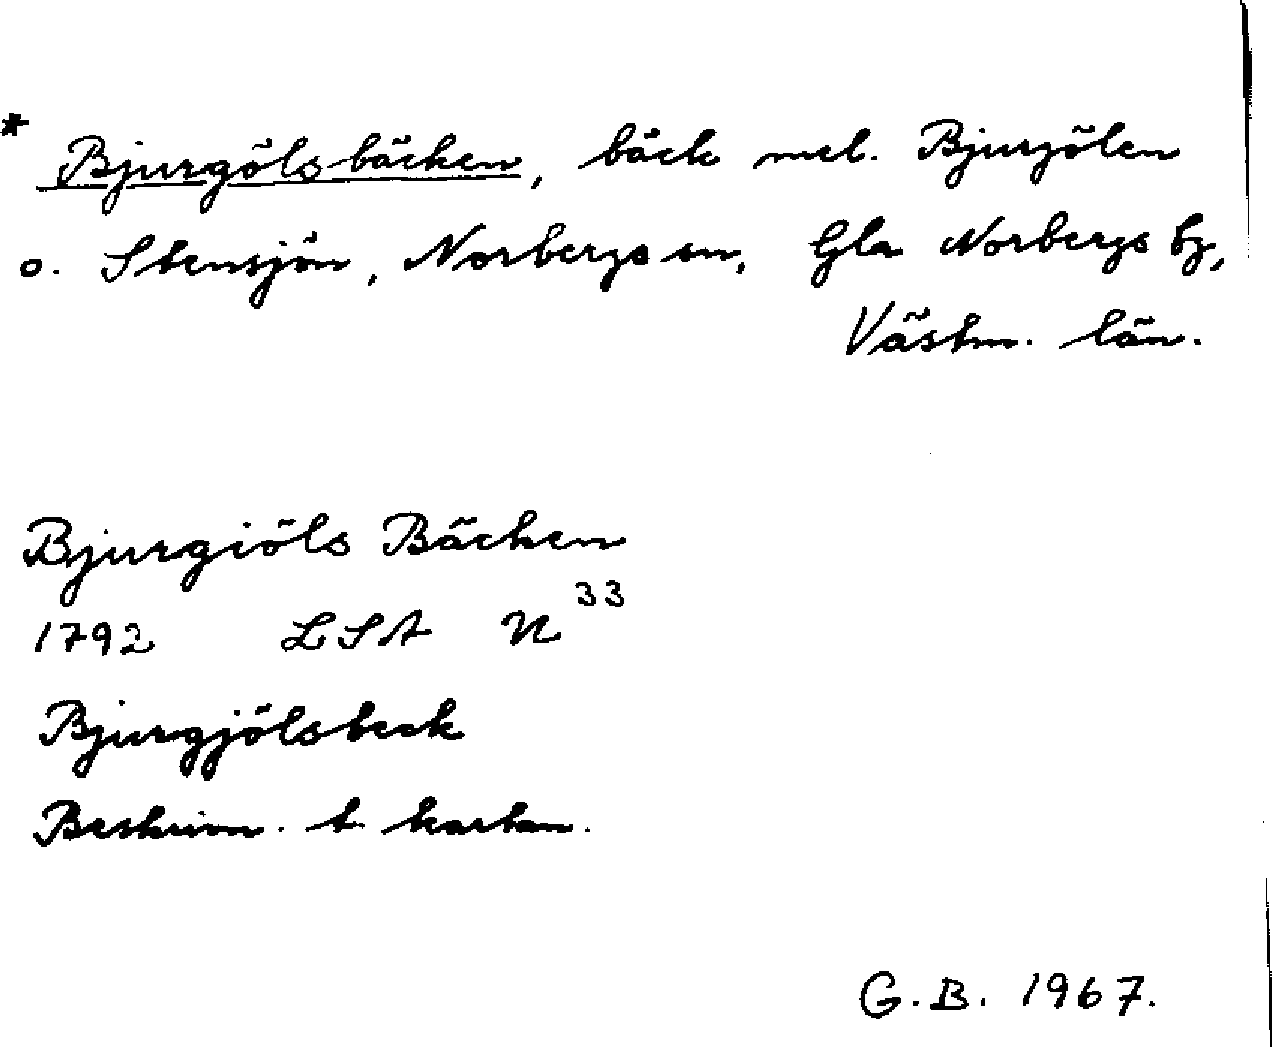 * Bjurgölsbäcken, bäck mel. Bjurgölen
o. Stensjön, Norbergs sn, Gla Norbergs bg,
Västm. län.
Bjurgiöls Bäcken
1792 LSA N 33
Bjurgjölsbeck
Beskrivn. t. kartan.
G.B. 1967.